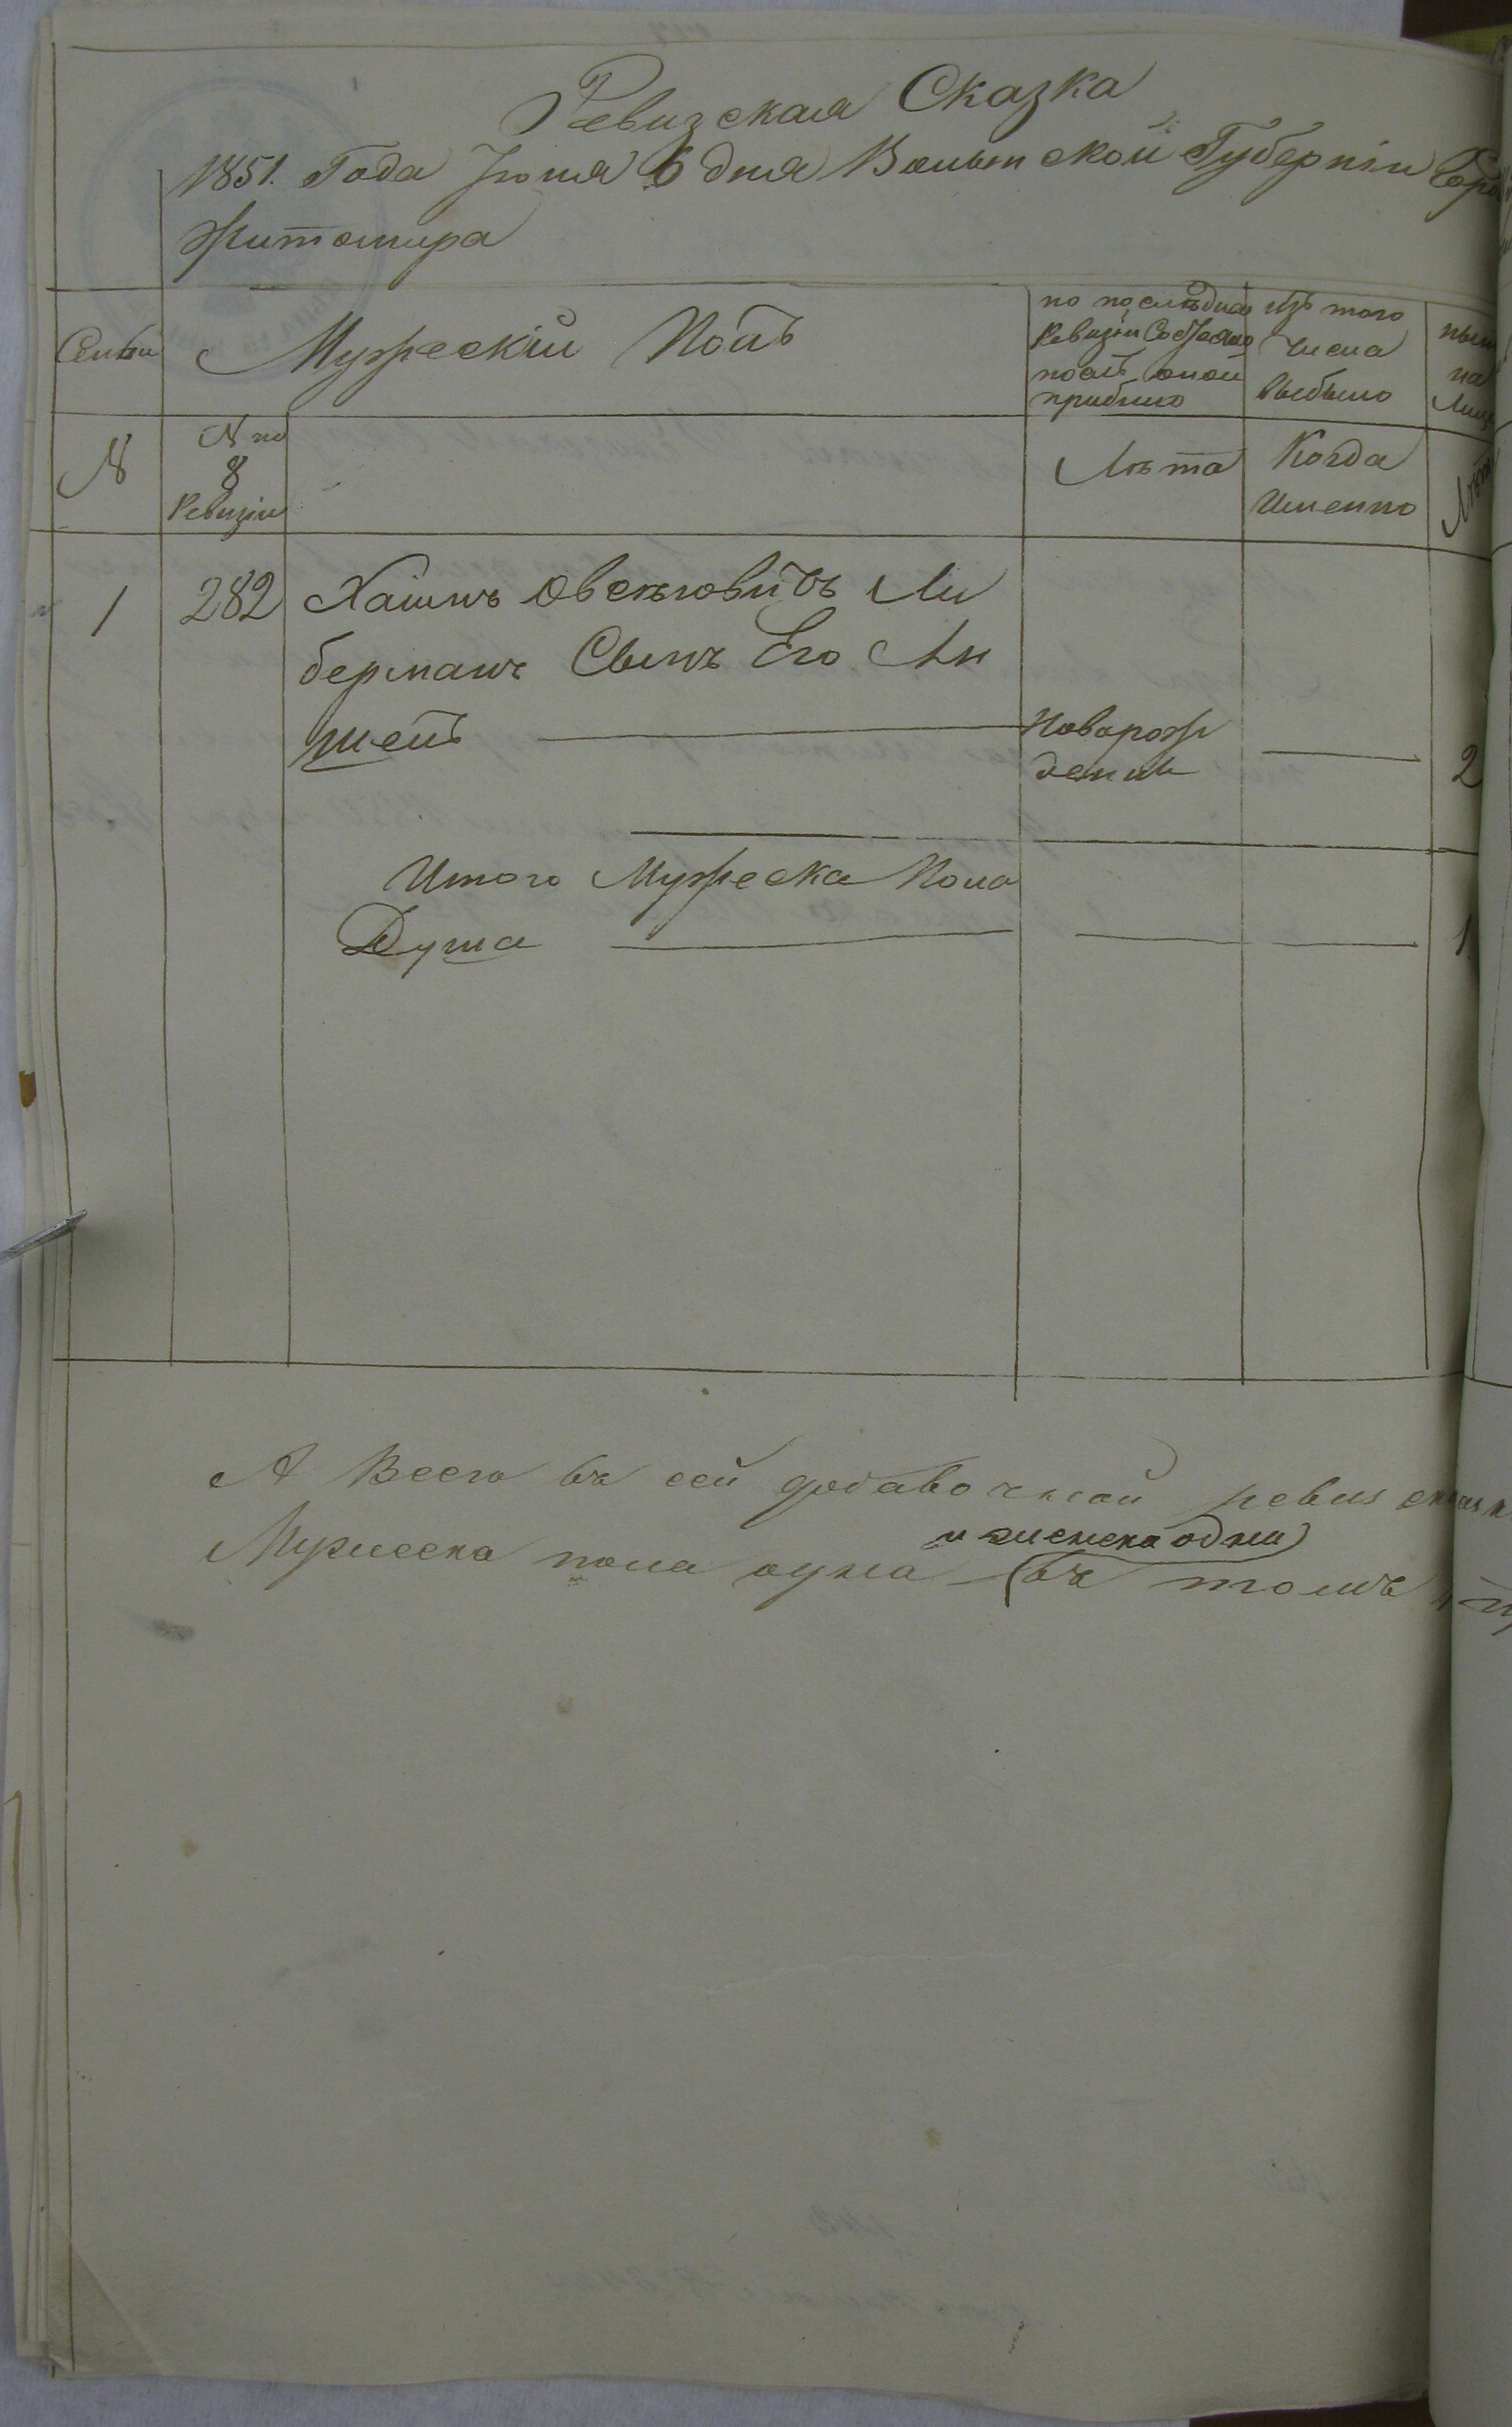 Ревизская Сказка
1851. Года Іюня 6 дня Волынской Губерніи
Житомира
Семьи
Мужескій Полъ
по последней
Ревизіи Состояло
после оной
прибыло
изъ того
числа
выбыло
на
№
№ по
8
Ревизіи
Лѣта
Когда
Именно
1
282
Хаимъ Овсѣевичъ Ли
берманъ Сынъ Его Ан
шель
Новорож
денъ
2
Итого Мужеска Пола
Душа
1
А Всего въ сей добавочной
и женска одна
Мужеска пола одна въ томъ